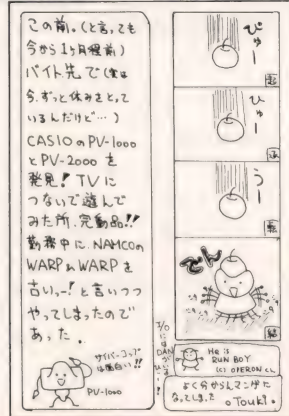 この前。(と言っても
今から1ヶ月程前)
バイト先で(実は
今、ずっと休みをとって
いるんだけど…)
CASIOのPV-1000
とPV-2000を
発見!TVに
つないで遊んで
みた所、完動品!!
勤務中に、NAMCOの
WARP&WARPを
古いっー!と言いつつ
やってしまったので
あった。
サイバーコップ
は面白い!!
PV-1000
びゅー
起
ひゅー
承
うー
転
でん
結
He is
RUN BOY
(c) OPERONくん
よく分からんマンガに
なってしまった
。Touki。